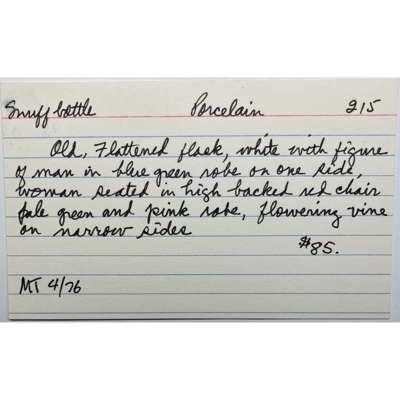 Snuff bottle Porcelain 215
Old, Flattened flask, white with figure
of man in blue green robe on one side,
woman seated in high backed red chair
pale green and pink robe, flowering vine
on narrow sides
$85.
MT 4/76